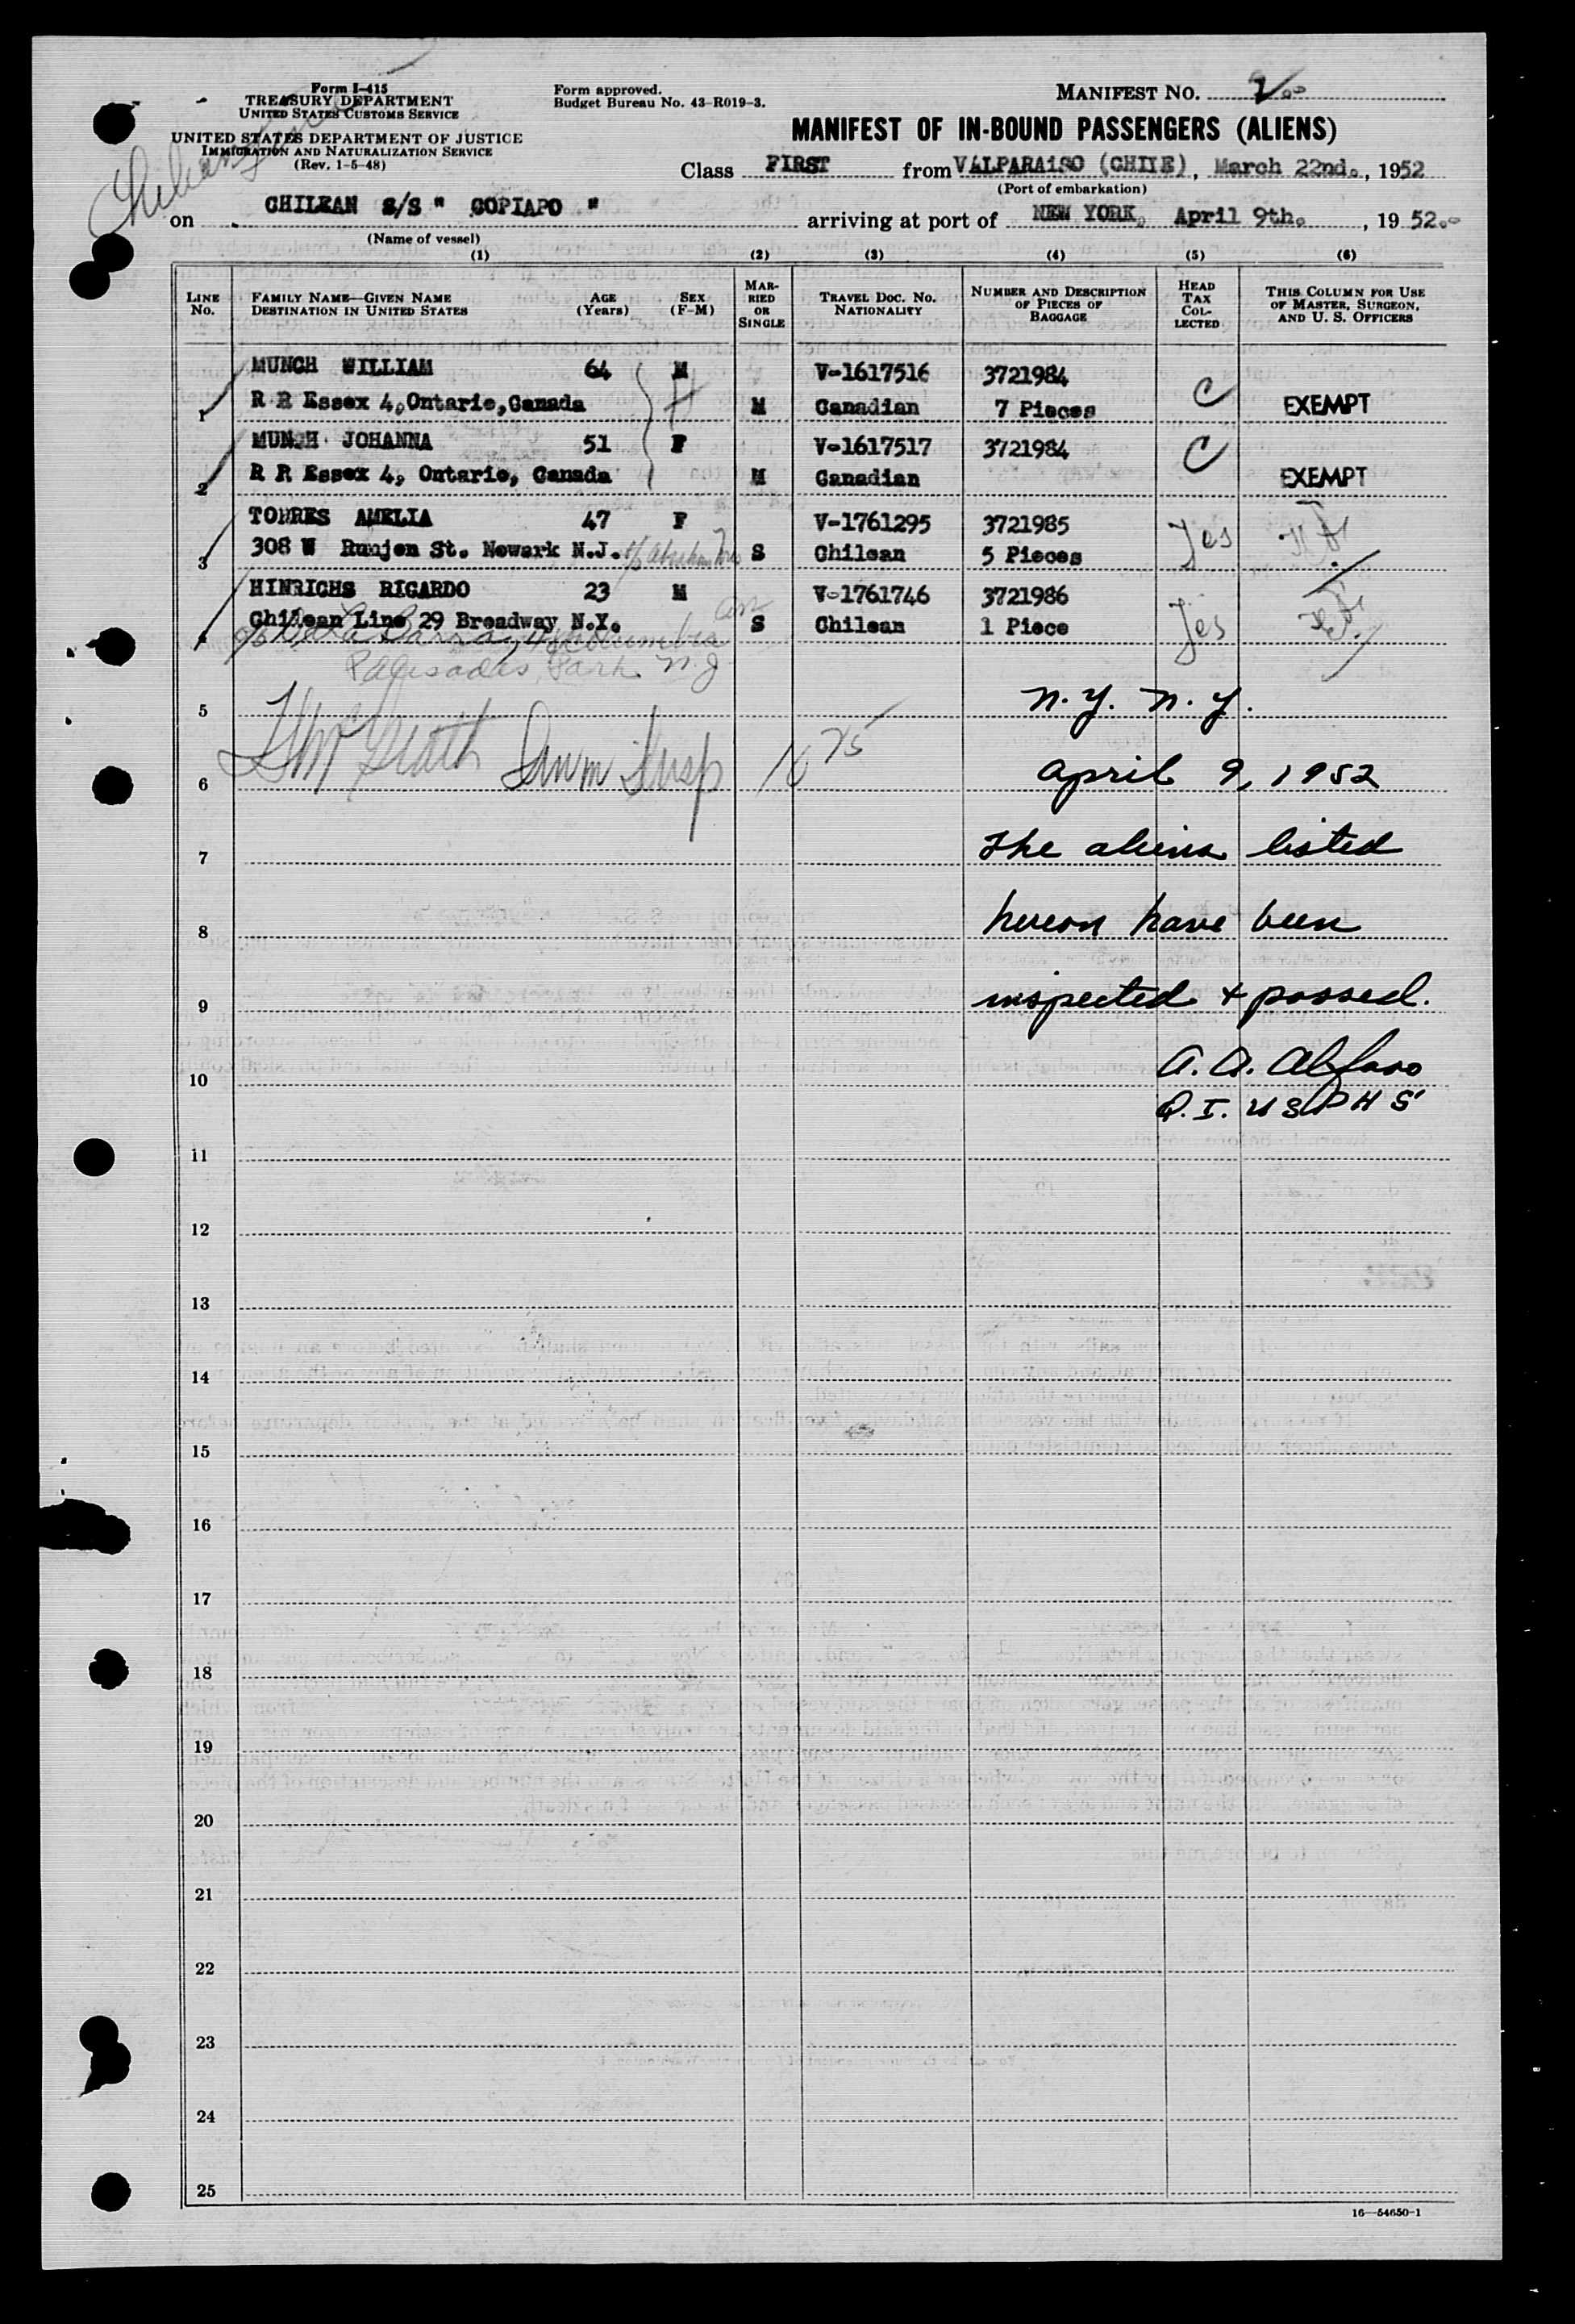 Form I-415
TREASURY DEPARTMENT
UNITED STATES CUSTOMS SERVICE
UNITED STATES DEPARTMENT OF JUSTICE
IMMIGRATION AND NATURALIZATION SERVICE
(Rev. 1-5-48)
Form approved.
Budget Bureau No. 43-R019-3.
MANIFEST NO. 2
MANIFEST OF IN-BOUND PASSENGERS (ALIENS)
Class FIRST from VALPARAISO (CHILE), March 22nd., 1952
(Port of embarkation)
on CHILEAN S/S " COPIAPO " arriving at port of NEW YORK, April 9th., 1952.
(Name of vessel)
(1) (2) (3) (4) (5) (6)
LINE No. FAMILY NAME—GIVEN NAME DESTINATION IN UNITED STATES AGE (Years) SEX (F-M) MARRIED OR SINGLE TRAVEL DOC. NO. NATIONALITY NUMBER AND DESCRIPTION OF PIECES OF BAGGAGE HEAD TAX COLLECTED THIS COLUMN FOR USE OF MASTER, SURGEON, AND U. S. OFFICERS
MUNCH WILLIAM 64 M V-1617516 3721984
1 R R Essex 4, Ontario, Canada M Canadian 7 Pieces C EXEMPT
MUNCH JOHANNA 51 F V-1617517 3721984
2 R R Essex 4, Ontario, Canada M Canadian C EXEMPT
TORRES AMELIA 47 F V-1761295 3721985
3 308 W Runjen St. Newark N.J. S Chilean 5 Pieces Yes
HINRICHS RICARDO 23 M V-1761746 3721986
4 Chilean Line 29 Broadway N.Y. S Chilean 1 Piece Yes
Palisades Park N J
5 N.Y. N.Y.
6 April 9, 1952
7 The aliens listed
8 hereon have been
9 inspected + passed.
10 A. A. Alfaro
Q. I. USPHS
11
12
13
14
15
16
17
18
19
20
21
22
23
24
25
16—54650-1